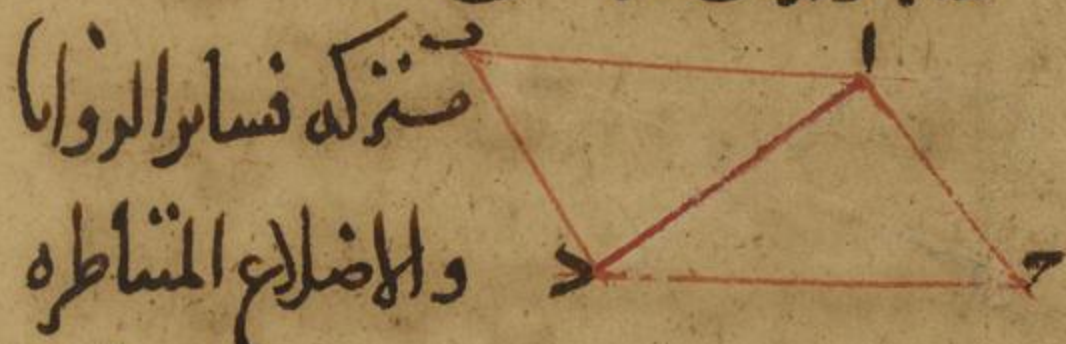 مشتركه فساير الزوايا
والاضلاع المتناظره
ا
ب
ح
د